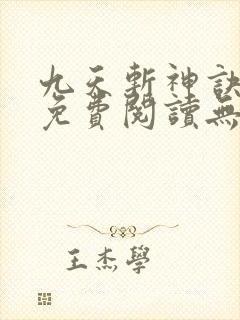 九天斬神訣
免費閱讀無
王杰學